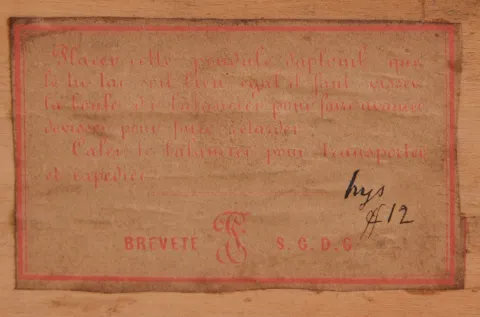 Placer cette pendule d'aplomb que
le tic tac soit bien égal il faut visser
la boule du balancier pour faire avancer
devisser pour faire retarder
Caler le balancier pour transporter
et expédier
hys
A12
BREVETE S. G. D. G.